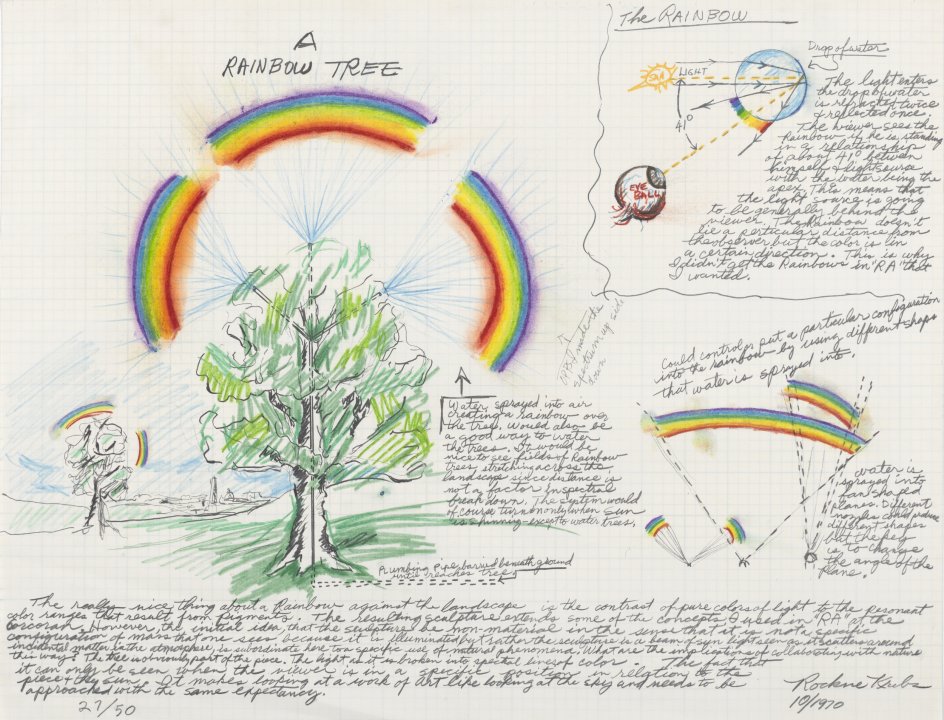 A
RAINBOW TREE
The RAINBOW
Drop of water
SUN
LIGHT
41°
EYE
BALL
The light enters
the drop of water
is refracted twice
& reflected once.
The viewer sees the
Rainbow if he is standing
in a relationship
of about 41° between
himself & light source
with the water being the
apex. This means that
the light source is going
to be generally behind the
viewer. The Rainbow doesn't
lie a particular distance from
the observer but the color is in
a certain direction. This is why
I didn't get the Rainbows in "RA" that
I wanted.
made the
spectrum up side
down
Water sprayed into air
creating a rainbow over
the tree. Would also be
a good way to water
the trees. It would be
nice to see fields of Rainbow
trees stretching across the
landscape since distance is
not a factor in spectral
break down. The system would
of course turn on only when sun
is shinning - except to water trees.
Could control or put a particular configuration
into the rainbow by using different shaps
that water is sprayed into.
water is
sprayed into
fan shaped
planes. Different
nozzles could produce
different shapes
but the key
is to change
the angle of the
Plane.
Plumbing pipe burried beneath ground
until reaches tree
The really nice thing about a Rainbow against the landscape is the contrast of pure colors of light to the
color ranges that result from pigments. The resulting sculpture extends some of the concepts I used in "RA" at the
Corcoran. However the initial idea that the sculpture be non-material in the sense that it is not a specific
configuration of mass that one sees because it is illuminated but rather the sculpture is a beam of sun light seen as it scatters around
incidental matter in the atmosphere, is subordinate here to a specific use of natural phenomena. What are the implications of collaborating with nature
this way? The tree is obviously part of the piece. The light as it is broken into spectral lines of color. The fact that
it can only be seen when the viewer is in a specific position in relation to the
piece & the sun. It makes looking at a work of art like looking at the sky and needs to be
approached with the same expectancy.
27/50
Rockne Krebs
10/1970